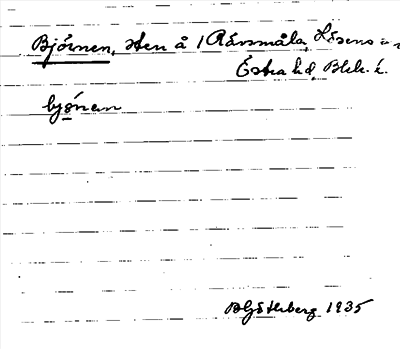 Björnen, sten å 1 Rävsmåla, Lösens sn
Östra hd, Blek. l.
bjö́nen
B Götlberg 1935